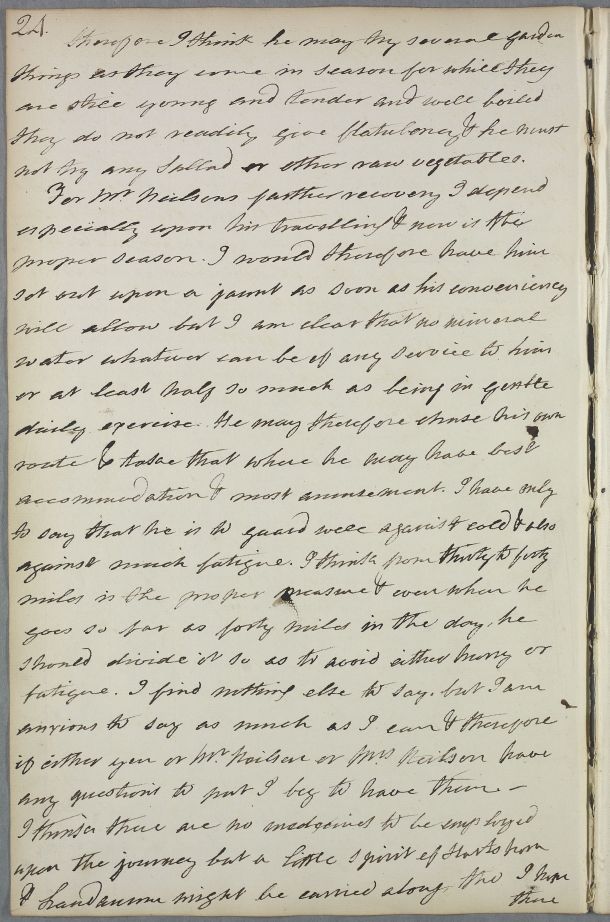 24.
therefore I think he may try several garden
things as they come in season for while they
are still young and tender and well boiled
they do not readily give flatulency & he must
not try any Sallad or other raw vegetables.
For Mr Neilsons farther recovery I depend
especially upon his travelling & now is the
proper season. I would therefore have him
set out upon a jaunt as soon as his conveniency
will allow but I am clear that no mineral
water whatever can be of any service to him
or at least half so much as being in gentle
daily exercise. He may therefore chuse his own
route & take that where he may have best
accommodation & most amusement. I have only
to say that he is to guard well against cold & also
against much fatigue. I think from thirty to forty
miles is the proper measure & even when he
goes so far as forty miles in the day, he
should divide it so as to avoid either hurry or
fatigue. I find nothing else to say. but I am
anxious to say as much as I can & therefore
if either you or Mr Neilson or Mrs Neilson have
any questions to put I beg to have them —
I think there are no medicines to be employed
upon the journey but a little spirit of Hartshorn
& Laudanum might be carried along tho I hope
there